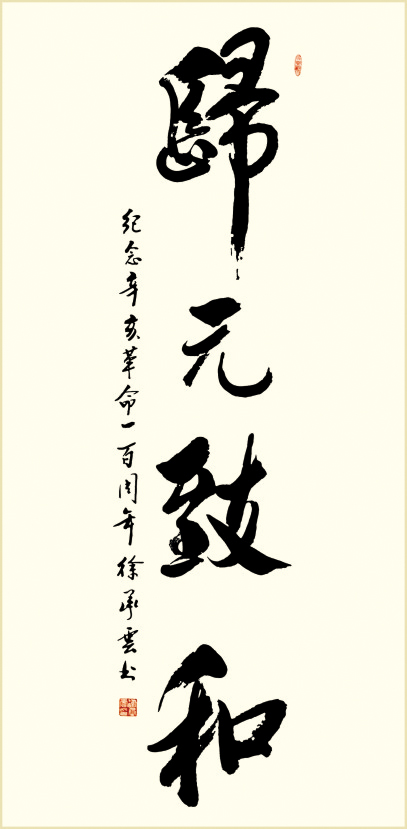 歸元致和
紀念辛亥革命一百周年徐承雲书